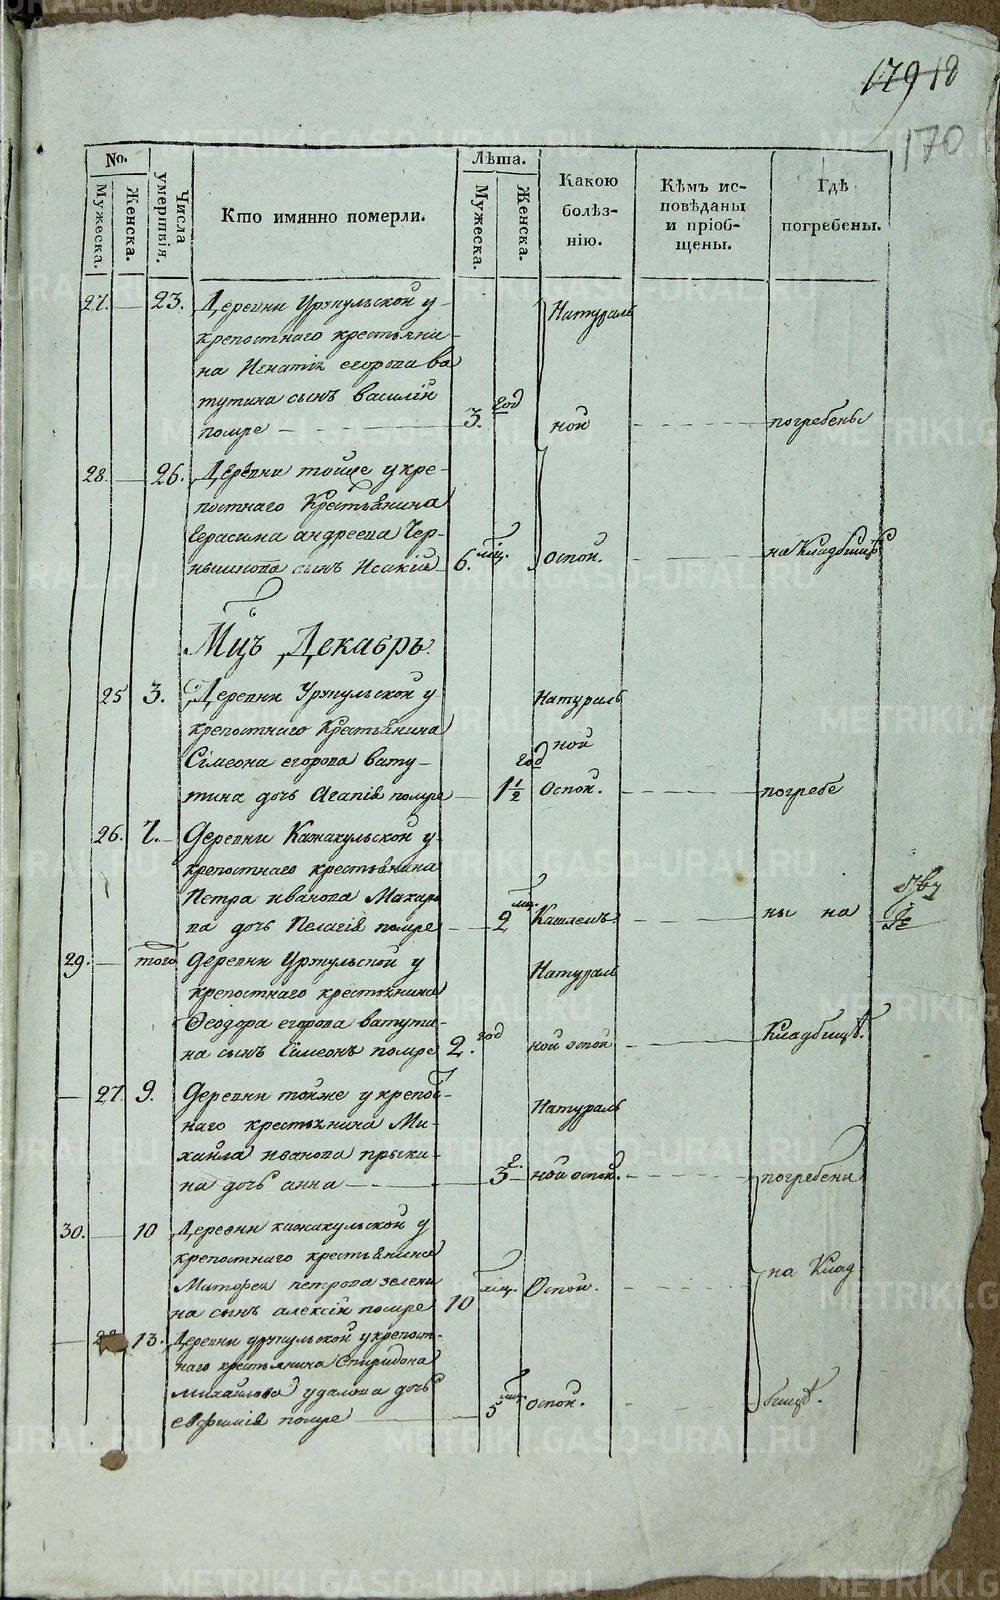 179 18
170
No.
Мужеска.
Женска.
Числа умертвія.
Кто имянно померли.
Лѣта.
Мужеска.
Женска.
Какою болѣз-
нію.
Кѣмъ ис-
повѣданы
и пріоб-
щены.
Гдѣ
погребены.
27. 23. Деревни Уржульской у
крепостнаго крестьяни
на Игнатія егорова ва
тутина сынъ василій
помре 3. год Натураль
ной погребены
28 26. Деревни тойже укре-
постнаго Крестьянина
Герасима андреева Чер-
нышкова сынъ Исакій 6. мц. оспой. на Кладбищѣ
Мцъ Декабрь.
25 3. Деревни Уржульской у
крепостнаго Крестьянина
Сімеона егорова вату-
тина дочь Агапія помре год 1 1/2 Натураль
ной
Оспой. погребе
26. 7. Деревни Кажакульской у
крепостнаго крестьянина
Петра иванова Макаро
ва дочь Пелагія помре 2 мц. Кашлемъ. ны на
29. того Деревни Уржульской у
крепостнаго крестьянина
Ѳеодора егорова ватути-
на сынъ Сімеонъ помре 2. год Натураль
ной оспой Кладбищѣ.
27 9. Деревни тойже укрепост-
наго крестьянина Ми-
хаила иванова
на дочь анна 3 г. Натураль
ной оспой. погребени
30. 10 Деревни кажакульской у
крепостнаго крестьянина
Матфея петрова зелени
на сынъ алексій помре 10 мц. Оспой. на Клад-
28 13. Деревни уржульской укрепост-
наго крестьянина Спиридона
михайлова удалова дочь
евфимія помре 5 мц. оспой. бищѣ.
METRIKI.GASO-URAL.RU